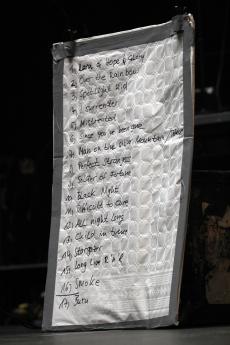 1, Land of Hope & Glory
2, Over the Rainbow
3, Spotlight Kid
4, I surrender
5, Mistreated
6, Since you've been gone
7, Man on the Silver Mountain /
8, Perfect Strangers
9, Soldier of Fortune
10, Black Night
11, Difficult to Cure
12, All night long
13, Child in time
14, Stargazer
15, Long Live R'n'R
16, SMOKE
17,